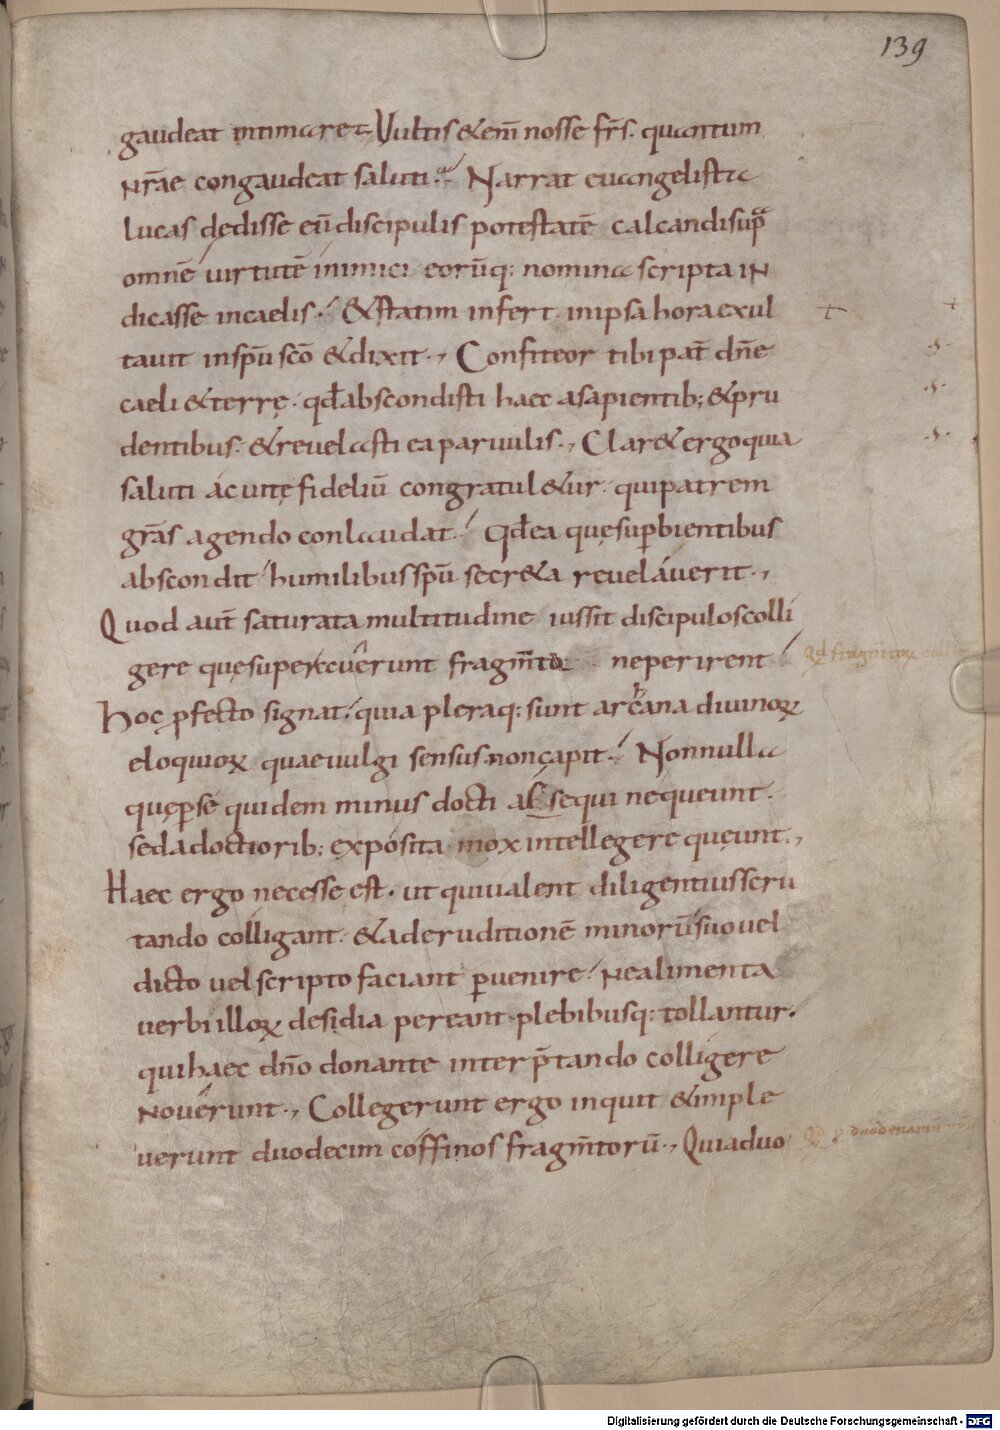 139
gaudeat intimaret., Vultis &eni̅ nosse fr̅s. quantum
nr̅ae congaudeat saluti. Narrat euangelista
lucas dedisse eu̅ discipulis potestate̅ calcandi supra
omne̅ uirtute̅ inimici eoru̅q; nomina scripta in
dicasse incaelis. &statim infert inipsa hora exul
tauit inspu̅ sco̅ &dixit., Confiteor tibi pat̅ dn̅e
caeli &terrę. qđ abscondisti haec asapientib; &pru
dentibus. &reuelasti ea paruulis., Clar& ergo quia
saluti ac uitę fideliu̅ congratul&ur. qui patrem
gr̅as agendo conlaudat. Qđ ea quę suꝑbientibus
abscondit humilibus spu̅ secr&a reuelauerit.,
Quod aut̅ saturata multitudine iussit discipulos colli
gere quę superauerunt fragm̅ta ne perirent
Hoc ꝓfecto signat. quia pleraq; sunt archana diuinoꝝ
eloquioꝝ quae uulgi sensus non capit. Nonnulla
quę ꝑ se quidem minus docti assequi nequeunt.
sed adoctiorib; exposita mox intellegere queunt.,
Haec ergo necesse est. ut qui ualent diligentius scru
tando colligant. &ad eruditione̅ minoru̅ suo uel
dicto uel scripto faciant ꝑuenire. Ne alimenta
uerbi illoꝝ desidia pereant plebibusq; tollantur.
qui haec dn̅o donante interp̅tando colligere
nouerunt., Collegerunt ergo inquit &imple
uerunt duodecim coffinos fragm̅toru̅., Quia duo
Qđ fragm̅toꝝ
duodenariu̅
Digitalisierung gefördert durch die Deutsche Forschungsgemeinschaft - DFG